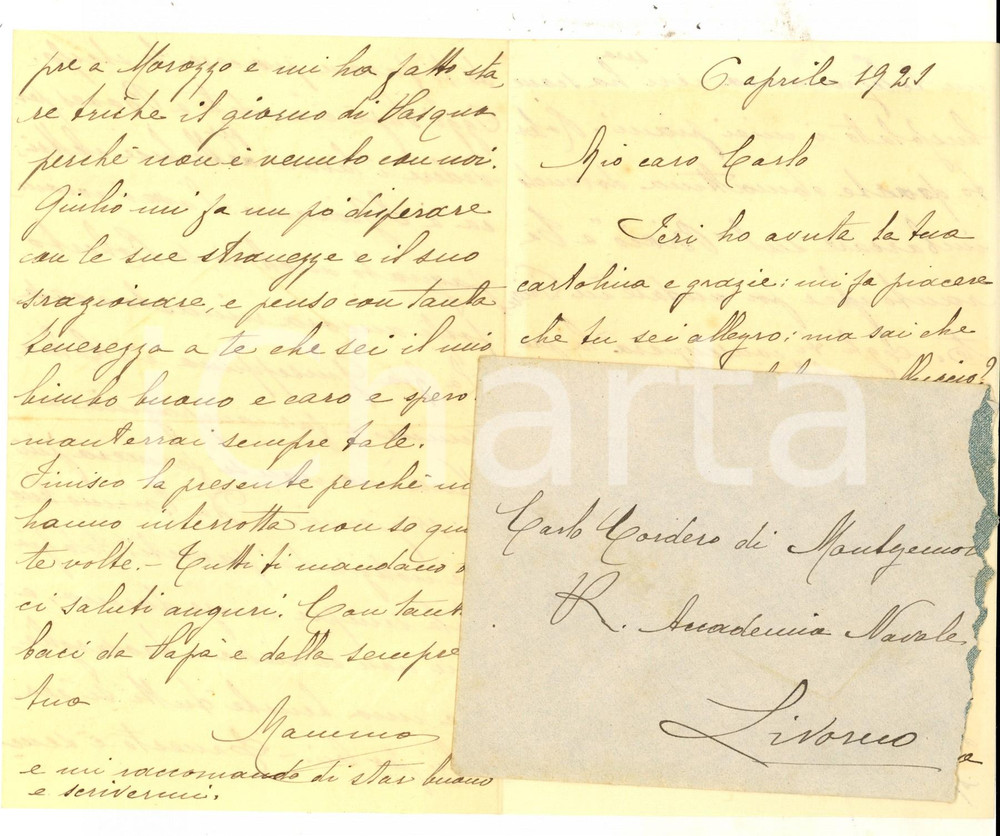 pre a Morozzo e mi ha fatto sta
re triste il giorno di Pasqua
perchè non è venuto con noi.
Giulio mi fa un pò disperare
con le sue stranezze e il suo
sragionare, e penso con tanta
tenerezza a te che sei il mio
bimbo buono e caro e spero
manterrai sempre tale.
Finisco la presente perchè m
hanno interrotta non so quan
te volte. - Tutti ti mandano
ci saluti auguri. Con tant
baci da Papà e dalla sempre
tua
Mamma
e mi raccomando di star buono
e scrivermi.
6 aprile 1921
Mio caro Carlo
Ieri ho avuta la tua
cartolina e grazie; mi fa piacere
che tu sei allegro; ma sai che
Carlo Cordero di Montezemol
R. Accademia Navale
Livorno
iCharta